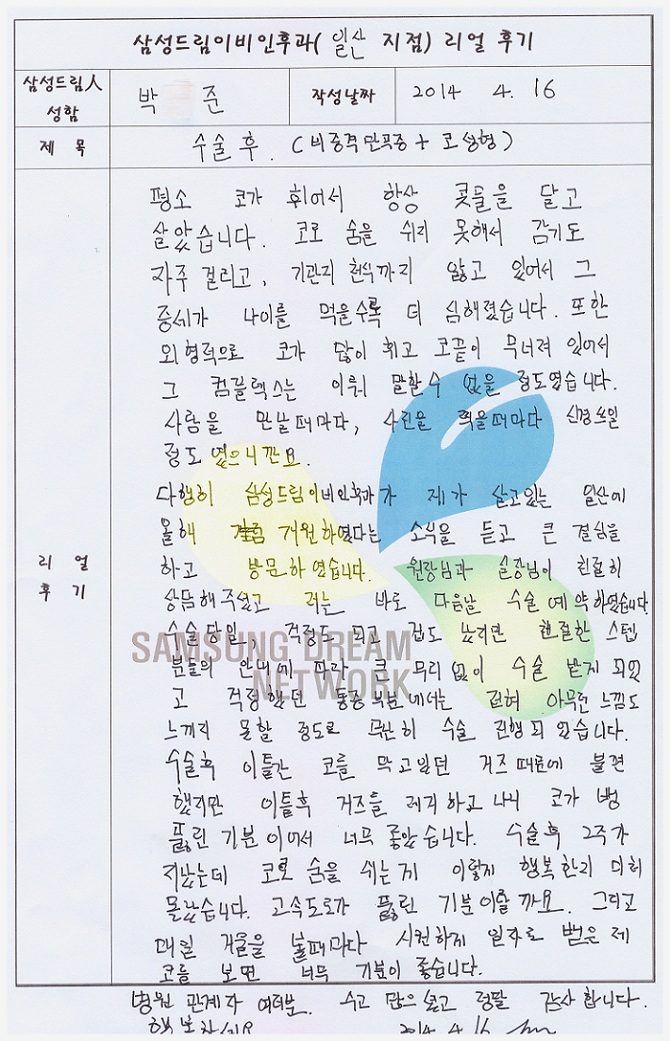 삼성드림이비인후과( 일산 지점) 리얼 후기
삼성드림人
성함
박 준
작성날짜
2014 4. 16
제 목
수술 후. (비중격만곡증 + 코성형)
평소 코가 휘어서 항상 콧물을 달고
살았습니다. 코로 숨을 쉬지 못해서 감기도
자주 걸리고, 기관지 천식까지 앓고 있어서 그
증세가 나이를 먹을수록 더 심해졌습니다. 또한
외형적으로 코가 많이 휘고 코끝이 무너져 있어서
그 컴플렉스는 이루 말할수 없을 정도였습니다.
사람을 만날때마다, 사진을 찍을때마다 신경쓰일
정도 였으니깐요.
다행히 삼성드림이비인후과가 제가 살고있는 일산에
올해 개원하였다는 소식을 듣고 큰 결심을
하고 방문하였습니다. 원장님과 실장님이 친절히
상담해주셨고 저는 바로 다음날 수술 예약하였습니다
수술당일, 걱정도 되고 겁도 났지만 친절한 스텝
분들의 안내에 따라 큰 무리없이 수술 받게 되었
고 걱정했던 통증 부분에서는 전혀 아무런 느낌도
느끼지 못할 정도로 무난히 수술 진행되었습니다.
수술후 이틀간 코를 막고있던 거즈 때문에 불편
했지만 이틀후 거즈를 제거하고 나니 코가 뻥
뚫린 기분이어서 너무 좋았습니다. 수술후 2주가
지났는데 코로 숨을 쉬는게 이렇게 행복한지 미처
몰랐습니다. 고속도로가 뚫린 기분이랄까요. 그리고
매일 거울을 볼때마다 시원하게 일자로 뻗은 제
코를 보면 너무 기분이 좋습니다.
병원 관계자 여러분. 수고 많으셨고 정말 감사합니다.
행복하세요 2014. 4. 16
리 얼
후 기
SAMSUNG DREAM
NETWORK